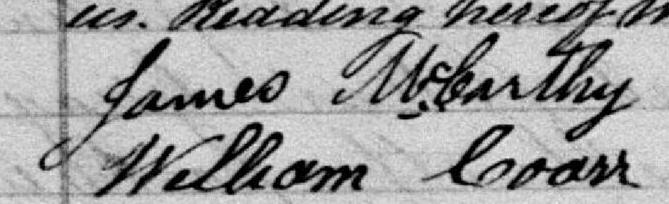 us. Reading hereof
James McCarthy
William Coarr